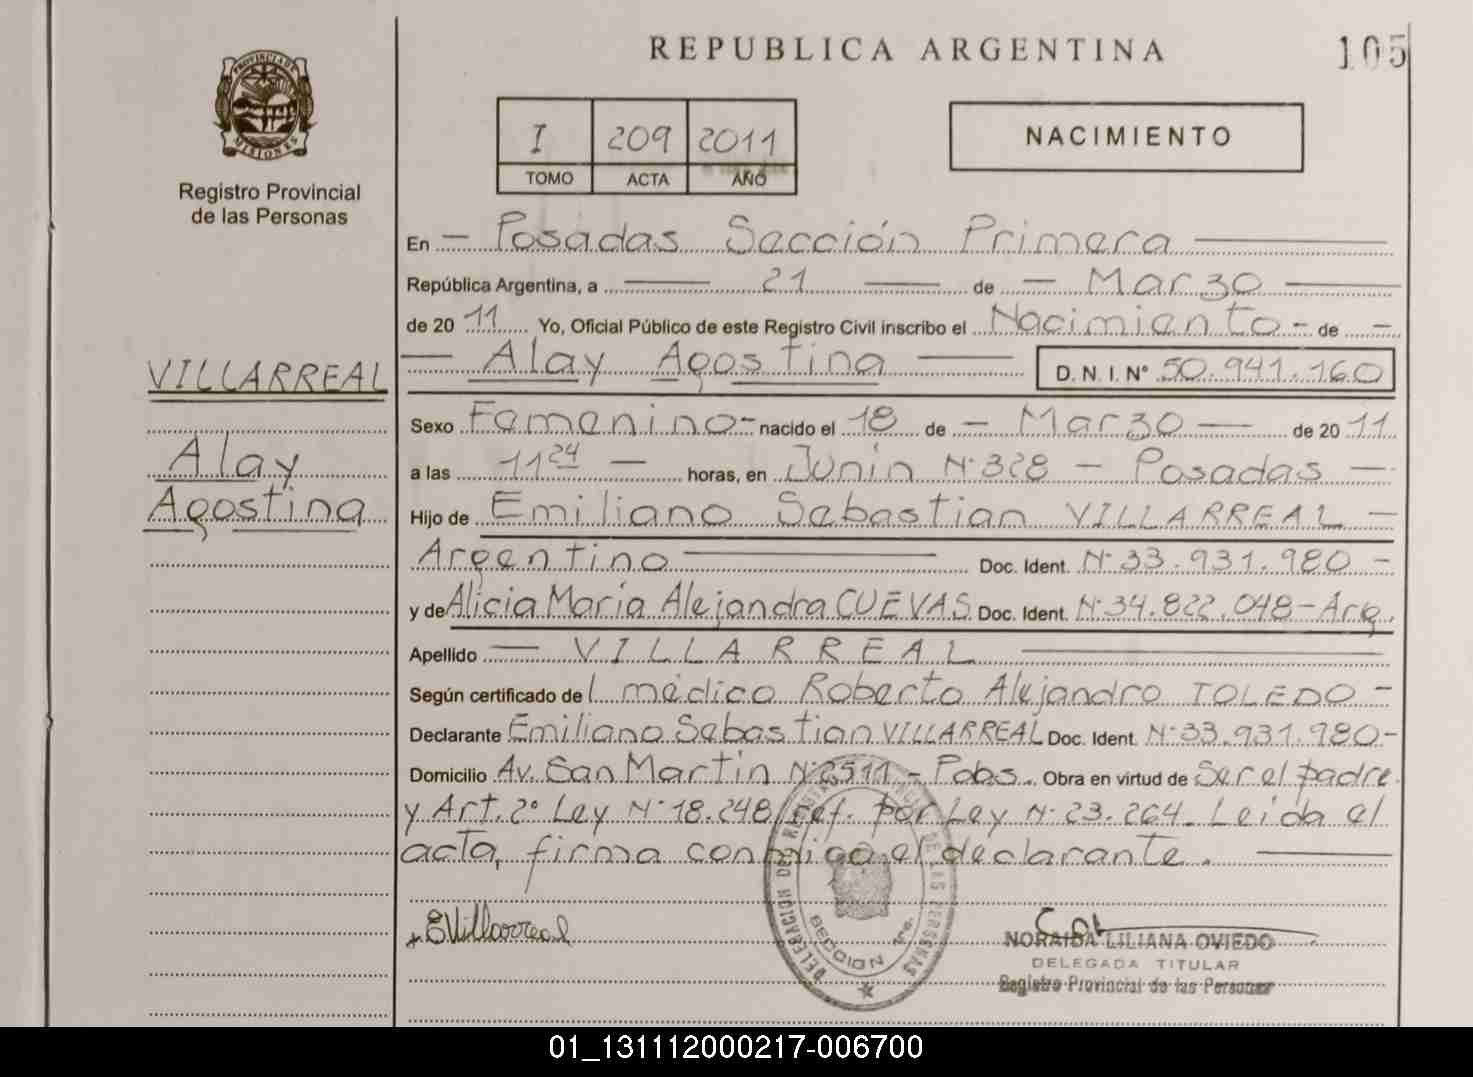 REPUBLICA ARGENTINA
105
PROVINCIA DE
MISIONES
Registro Provincial
de las Personas
I 209 2011
TOMO ACTA AÑO
NACIMIENTO
En - Posadas Sección Primera
República Argentina, a 21 de - Marzo
de 20 11 Yo, Oficial Público de este Registro Civil inscribo el Nacimiento - de -
Alay Agostina D. N. I. N° 50.941.160
VILLARREAL
Alay
Agostina
Sexo Femenino - nacido el 18 de - Marzo - de 20 11
a las 11 24 - horas, en Junín N° 328 - Posadas -
Hijo de Emiliano Sebastian VILLARREAL -
Argentino Doc. Ident. N° 33.931.980 -
y de Alicia María Alejandra CUEVAS Doc. Ident. N° 34.822.048 - Arg.
Apellido - VILLARREAL
Según certificado de l médico Roberto Alejandro TOLEDO -
Declarante Emiliano Sebastian VILLARREAL Doc. Ident. N° 33.931.980 -
Domicilio Av. San Martín N° 2511 - Pdas. Obra en virtud de Ser el padre
y Art. 2° Ley N° 18.248, ref. por Ley N° 23.264. Leída el
acta, firma conmigo el declarante.
EVillarreal
DE LAS PERSONAS
SECCION 1ra.
NORAIDA LILIANA OVIEDO
DELEGADA TITULAR
Registro Provincial de las Personas
01_131112000217-006700